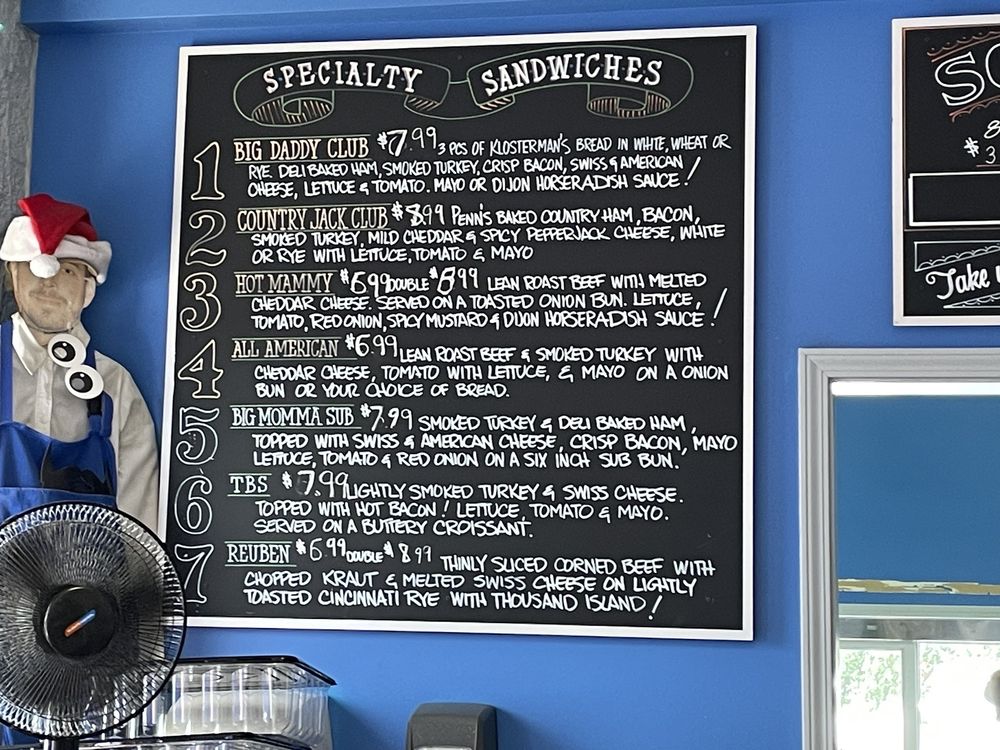 SPECIALTY SANDWICHES
1 BIG DADDY CLUB $7.99 3 PCS OF KLOSTERMAN'S BREAD IN WHITE, WHEAT OR
RYE. DELI BAKED HAM, SMOKED TURKEY, CRISP BACON, SWISS & AMERICAN
CHEESE, LETTUCE & TOMATO. MAYO OR DIJON HORSERADISH SAUCE!
2 COUNTRY JACK CLUB $8.99 PENN'S BAKED COUNTRY HAM, BACON,
SMOKED TURKEY, MILD CHEDDAR & SPICY PEPPERJACK CHEESE, WHITE
OR RYE WITH LETTUCE, TOMATO & MAYO
3 HOT MAMMY $6.99 DOUBLE $8.99 LEAN ROAST BEEF WITH MELTED
CHEDDAR CHEESE. SERVED ON A TOASTED ONION BUN. LETTUCE,
TOMATO, RED ONION, SPICY MUSTARD & DIJON HORSERADISH SAUCE!
4 ALL AMERICAN $6.99 LEAN ROAST BEEF & SMOKED TURKEY WITH
CHEDDAR CHEESE, TOMATO WITH LETTUCE, & MAYO ON A ONION
BUN OR YOUR CHOICE OF BREAD.
5 BIG MOMMA SUB $7.99 SMOKED TURKEY & DELI BAKED HAM,
TOPPED WITH SWISS & AMERICAN CHEESE, CRISP BACON, MAYO
LETTUCE, TOMATO & RED ONION ON A SIX INCH SUB BUN.
6 TBS $7.99 LIGHTLY SMOKED TURKEY & SWISS CHEESE.
TOPPED WITH HOT BACON! LETTUCE, TOMATO & MAYO.
SERVED ON A BUTTERY CROISSANT.
7 REUBEN $6.99 DOUBLE $8.99 THINLY SLICED CORNED BEEF WITH
CHOPPED KRAUT & MELTED SWISS CHEESE ON LIGHTLY
TOASTED CINCINNATI RYE WITH THOUSAND ISLAND!
$3
Take